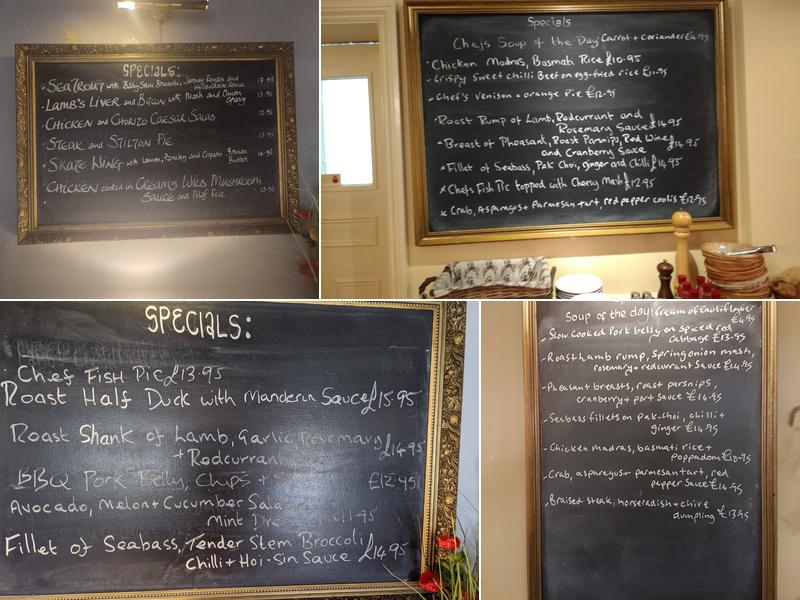 SPECIALS:
SEATROUT with Baby Stem Broccoli, Jersey Royals and
Hollandaise Sauce 17.95
LAMB'S LIVER and BACON with Mash and Onion
Gravy 13.95
CHICKEN and CHORIZO CAESAR SALAD 12.95
STEAK and STILTON PIE 13.95
SKATE WING with Lemon, Parsley and Capers Brown
Butter 14.95
CHICKEN cooked in CREAMY WILD MUSHROOM
SAUCE and Pilaf Rice 13.95
Specials
Chefs Soup of the Day Carrot + Coriander £4.95
Chicken Madras, Basmati Rice £10.95
Crispy Sweet chilli Beef on egg-fried rice £11.95
Chef's Venison + orange Pie £12.95
Roast Rump of Lamb, Redcurrant and
Rosemary Sauce £14.95
Breast of Pheasant, Roast Parsnips, Red Wine
and Cranberry Sauce £14.95
Fillet of Seabass, Pak Choi, ginger and Chilli £14.95
Chefs Fish Pie topped with Cheesy Mash £12.95
Crab, Asparagus + Parmesan tart, red pepper coulis £12.95
SPECIALS:
Chef FISH Pie £13.95
Roast Half Duck with Manderin Sauce £15.95
Roast Shank of Lamb, Garlic, Rosemary
+ Redcurrant £14.95
BBQ Pork Belly, Chips + £12.95
Avocado, Melon + Cucumber Sala
Mint Dre £11.95
Fillet of Seabass, Tender Stem Broccoli
Chilli + Hoi-Sin Sauce £14.95
Soup of the day: Cream of Cauliflower
£4.95
Slow Cooked Pork belly on spiced red
cabbage £13.95
Roast lamb rump, Spring onion mash,
rosemary + redcurrant Sauce £14.95
Pheasant breasts, roast parsnips,
cranberry + port sauce £14.95
Seabass fillets on Pak-choi, chilli +
ginger £14.95
Chicken madras, basmati rice +
poppadom £10.95
Crab, asparagus + parmesan tart, red
pepper sauce £14.95
Braised steak, horseradish + chive
dumpling £13.95